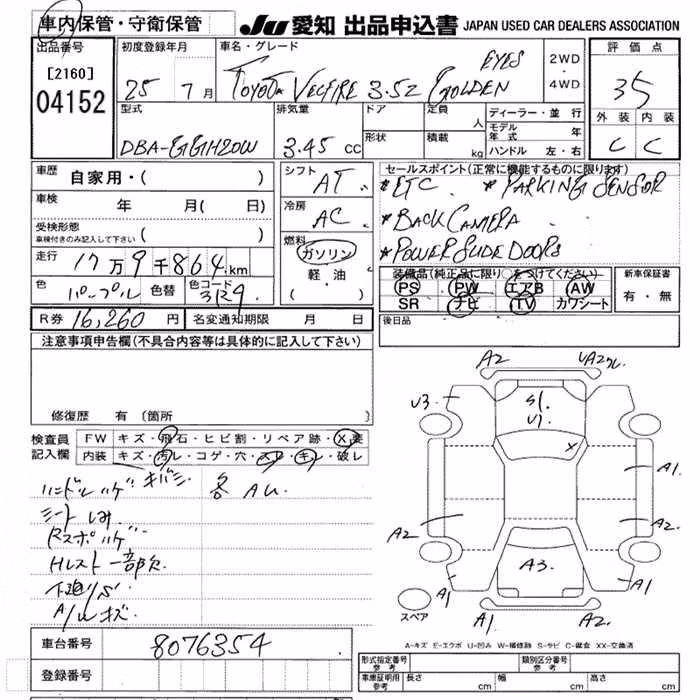 車内保管・守衛保管
JU 愛知 出品申込書 JAPAN USED CAR DEALERS ASSOCIATION
出品番号
[2160]
04152
初度登録年月
25 7月
車名・グレード
TOYOTA VELFIRE 3.5Z GOLDEN
EYES
2WD
・
4WD
評価点
35
外装 内装
C C
型式
DBA-GGH20W
排気量
3.45 cc
ドア
形状
定員
人
積載
kg
ディーラー・並行
モデル年式 年
ハンドル 左・右
車歴
自家用・( )
車検
年 月( 日)
受検形態
車検付きのみ記入して下さい ( )
走行
17万9千864km
色
パープル
色替
色コード
3129
シフト
AT
冷房
AC
燃料
ガソリン
・
軽油
( )
セールスポイント(正常に機能するものに限ります)
*ETC *PARKING SENSOR
*BACK CAMERA
*POWER SLIDE DOORS
装備品(純正品に限り○をつけてください)
PS PW エアB AW
SR ナビ TV カワシート
新車保証書
有・無
R券 16,260 円
名変通知期限 月 日
後日品
注意事項申告欄(不具合内容等は具体的に記入して下さい)
修復歴 有 〔箇所 〕
検査員
記入欄
FW キズ・飛石・ヒビ割・リペア跡・X要
内装 キズ・汚レ・コゲ・穴・スレ・キレ・破レ
ハンドルハゲ キバミ 各AU.
シートしみ
Rスポハゲ
Hレスト一部欠
下廻りS
A/Wキズ
A2
U3
S1
U1
X
A1
A2
A2
A3
A1
A1
A1
A2
スペア
A-キズ E-エクボ U-凹み W-補修跡 S-サビ C-腐食 XX-交換済
車台番号
8076354
登録番号
形式指定番号
参考
類別区分番号
参考
車庫証明用
参考
長さ cm
幅 cm
高さ cm